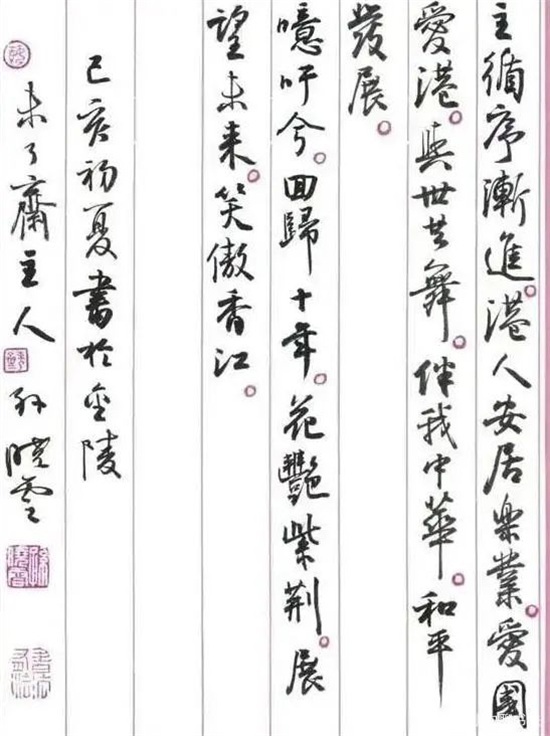 主循序漸進。港人安居樂業。愛國
愛港。與世共舞。伴我中華。和平
發展。
噫吁兮。回歸十年。花艷紫荆。展
望未来。笑傲香江。
己亥初夏書於金陵
未了齋主人 孙曉雲